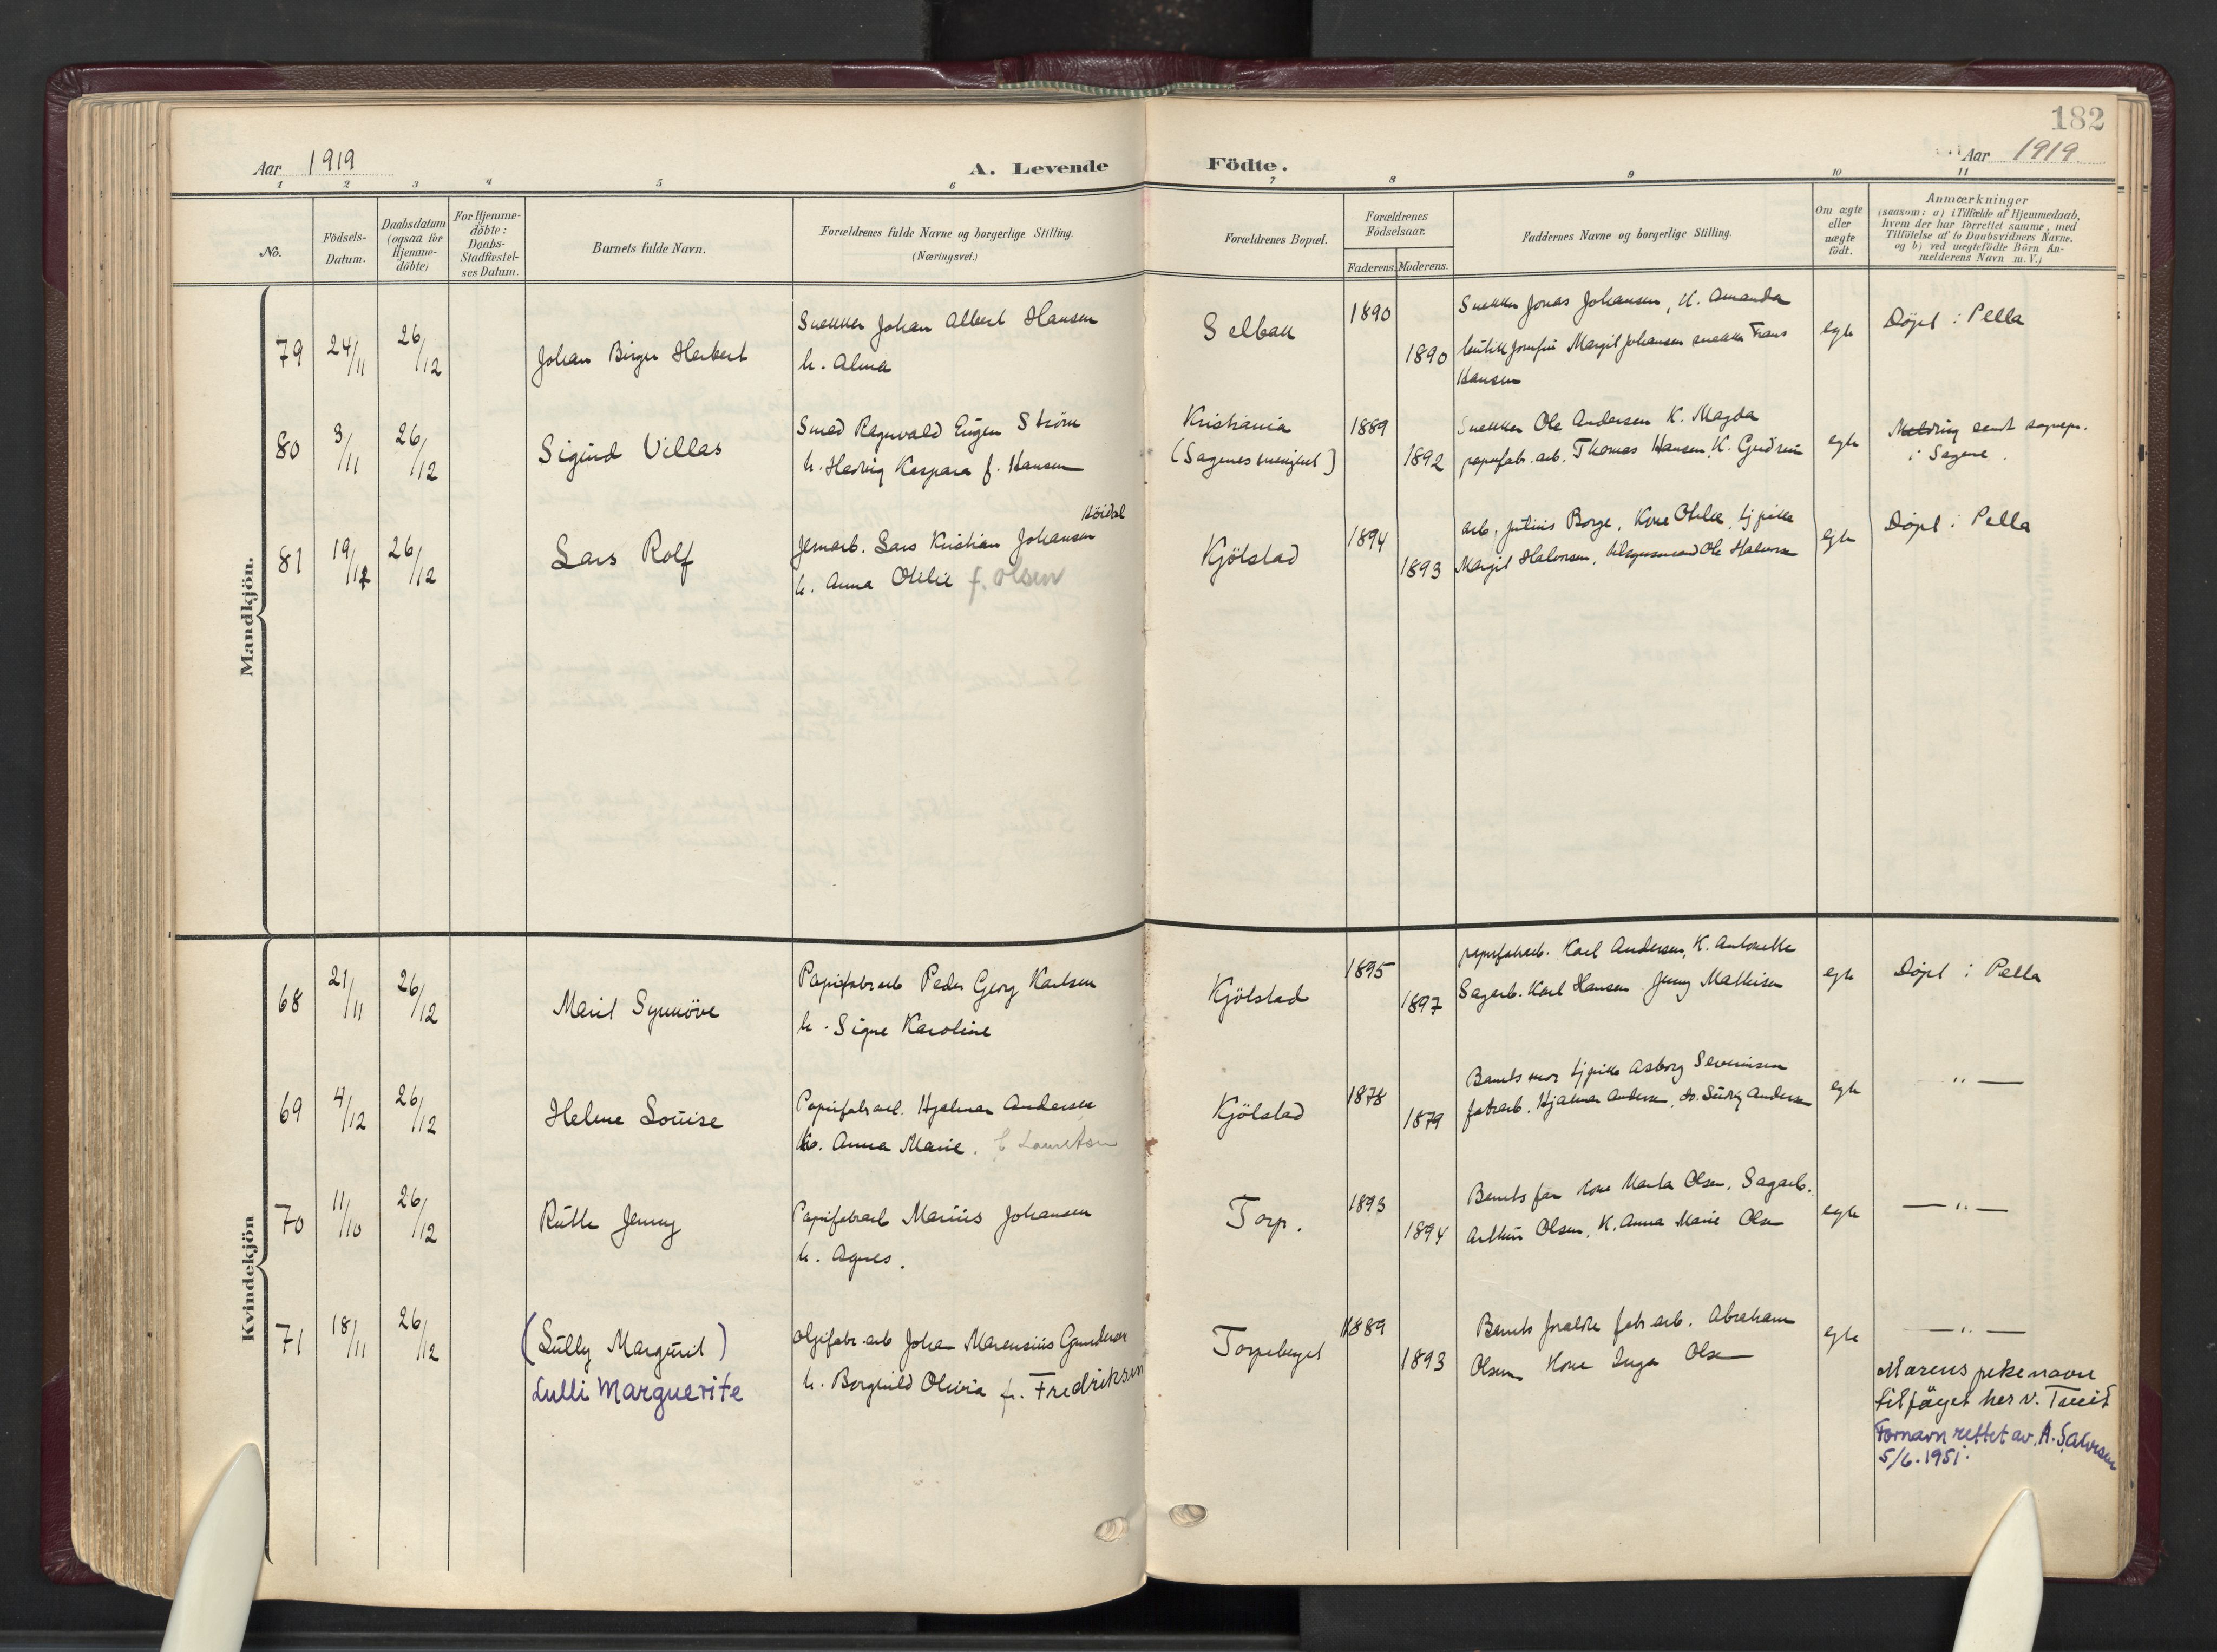 182
Aar 1919
A. Levende
Födte.
Aar 1919.
1 2 3 4 5 6 7 8 9 10 11
No.
Födsels-
Datum.
Daabsdatum
(ogsaa for
Hjemme-
döbte)
For Hjemme-
döbte:
Daabs-
Stadfæstel-
ses Datum.
Barnets fulde Navn.
Forældrenes fulde Navne og borgerlige Stilling.
(Næringsvei.)
Forældrenes Bopæl.
Forældrenes
Födselsaar.
Faderens. Moderens.
Faddernes Navne og borgerlige Stilling.
Om ægte
eller
uægte
födt.
Anmærkninger
(saasom: a) i Tilfælde af Hjemmedaab,
hvem der har forrettet samme, med
Tilföielse af to Daabsvidners Navne,
og b) ved uægtefödte Börn An-
melderens Navn m. V.)
Mandkjön.
79 24/11 26/12
Johan Birger Herbert
Snekker Johan Albert Hansen
h. Alma
Selbak
1890
1890
Snekker Jonas Johansen, K. Amanda
Margit Johansen snekker Frans
Hansen
egte
Döpt i Pella
80 3/11 26/12
Sigurd Villas
Smed Ragnvald Eugen Ström
h. Hedvig Kaspara f. Hansen
Kristiania
(Sagenes menighet)
1889
1892
Snekker Ole Andersen K. Magda
papirfabr. arb. Thomas Hansen, K. Gudrun
egte
Melding sendt sognepr.
i Sagene.
81 19/12 26/12
Lars Rolf
Höidal
Jernarb. Lars Kristian Johansen
h. Anna Otilie f. Olsen
Kjölstad
1894
1893
arb. Julius Borge, Kone Otilie, tj.pike
Margit Halvorsen, Ole Halvorsen
egte
Döpt i Pella
Kvindekjön
68 21/11 26/12
Marit Synnöve
Papirfabrarb Peder Georg Karlsen
h. Signe Karoline
Kjölstad
1895
1897
papirfabrarb. Karl Andersen, K. Antonette
Sagarb. Karl Hansen Jenny Mathisen
egte
Döpt i Pella
69 4/12 26/12
Helene Louise
Papirfabrarb. Hjalmar Andersen
h. Anna Marie.
Kjölstad
1878
1879
Barnets mor tj.pike Asborg Severinsen
fabrarb. Hjalmar Andersen, Andersen
egte
— " —
70 11/10 26/12
Ruth Jenny
Papirfabrarb Marius Johansen
h. Agnes.
Torp.
1893
1894
Barnets far kone Marta Olsen, Sagarb.
Arthur Olsen, K. Anna Marie Olsen
egte
— " —
71 18/11 26/12
(Lully Margurit)
Lulli Marguerite
oljefabr. arb Johan Marensius Gundersen
h. Borghild Olivia f. Fredriksen
Torpeberget
1889
1893
Barnets foreldre fabr arb. Abraham
Olsen Kone Inga Olsen
egte
— " —
Morens pikenavn
tilföyet her v. Tveit
Fornavn rettet av A. Salvesen
5/6. 1951.